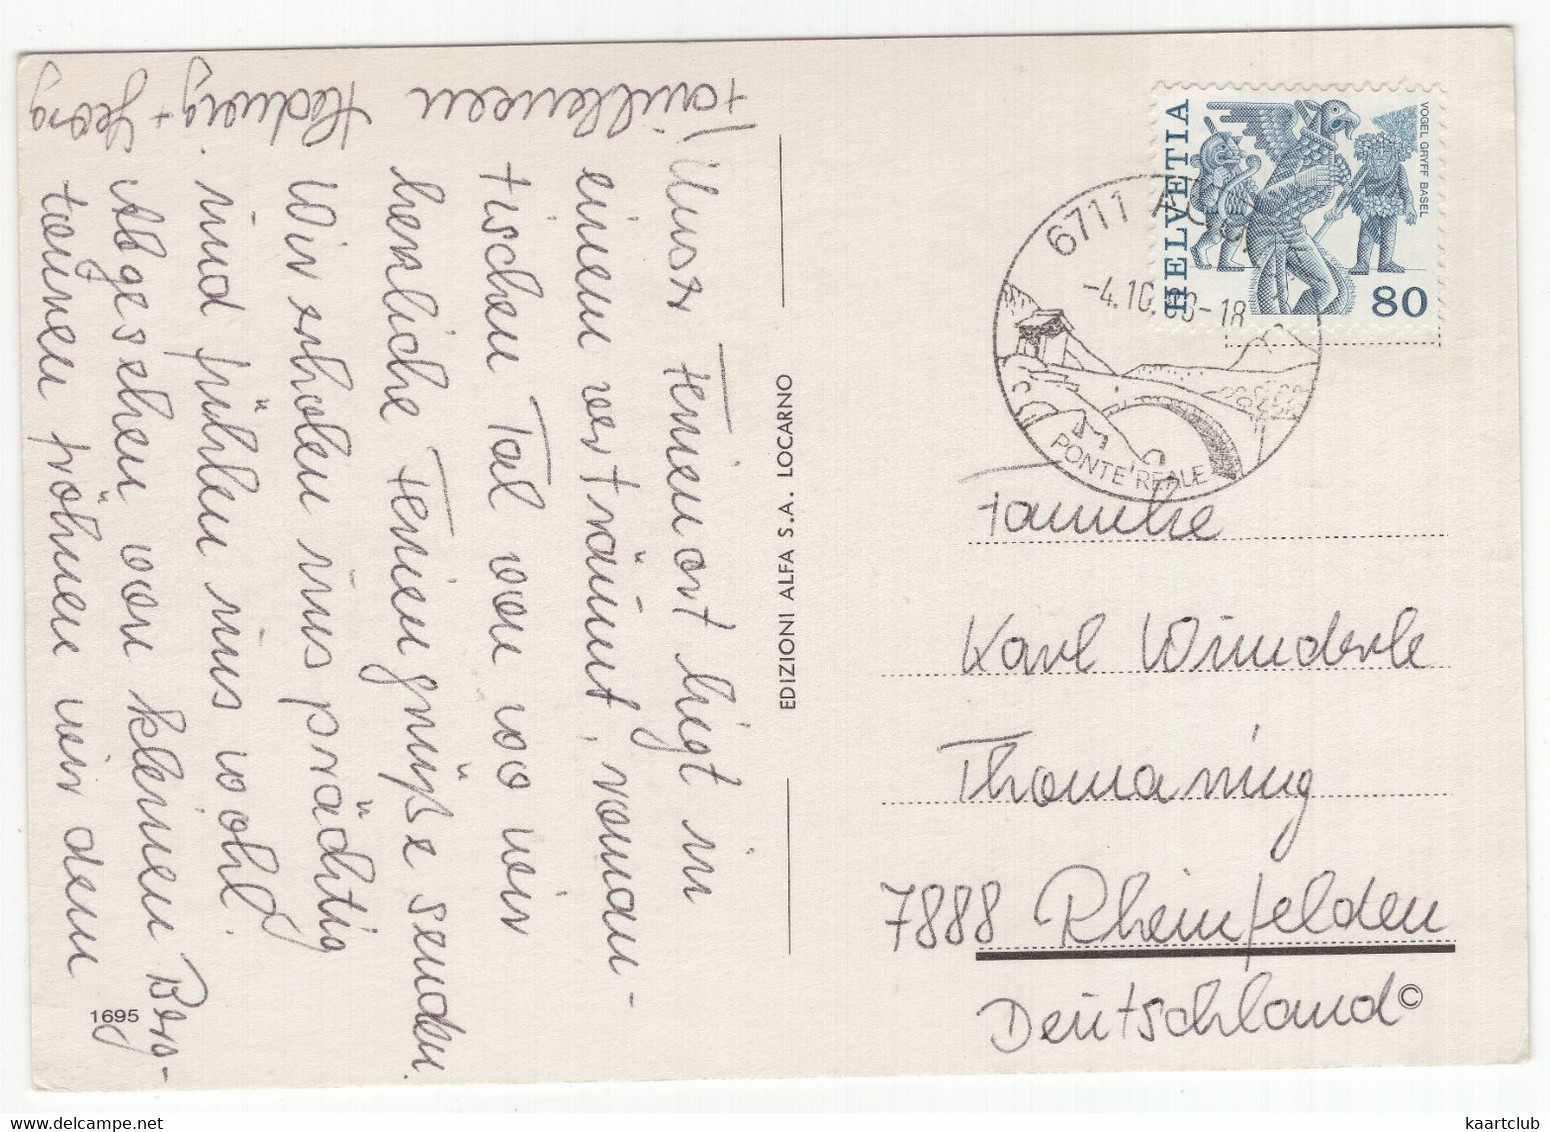 Unser Ferienort liegt in
einem verträumt, roman-
tischen Tal von wo wir
herzliche Feriengrüße senden.
Wir erholen uns prächtig
und fühlen uns wohl.
Abgesehen von kleinen Berg-
touren fröhnen wir dem
Faulenzen
Hedwig + Georg
1695
EDIZIONI ALFA S.A. LOCARNO
HELVETIA
VOGEL GRYFF BASEL
80
6711
-4.10.
-18
PONTE REALE
Familie
Karl Wunderle
Thomaring
7888 Rheinfelden
Deutschland
©
kaartclub